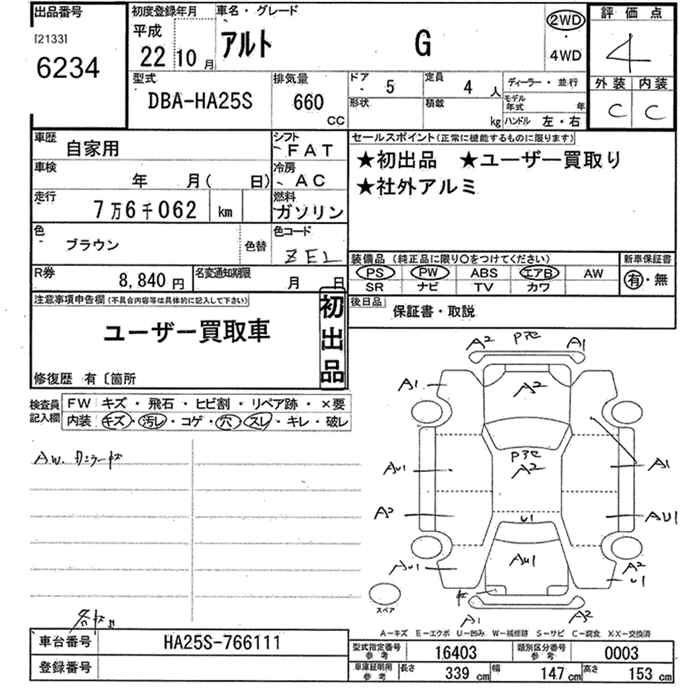 出品番号 初度登録年月 車名・グレード 評価点
[2133] 平成 アルト G 2WD 4
6234 22年 10月 4WD
外装 内装
型式 排気量 ドア 5 定員 4人 ディーラー・並行 C C
DBA-HA25S 660 cc 形状 積載 kg モデル年式 年
ハンドル 左・右
車歴 自家用 シフト FAT セールスポイント(正常に機能するものに限ります)
車検 年 月( 日) 冷房 AC ★初出品 ★ユーザー買取り
走行 7万6千062 km 燃料 ガソリン ★社外アルミ
色 ブラウン 色替 色コード ZE1
装備品(純正品に限り○をつけてください) 新車保証書
R券 8,840円 名変通知期限 月 日 PS PW ABS エアB AW 有・無
SR ナビ TV カワ
注意事項申告欄(不具合内容等は具体的に記入して下さい) 初出品 後日品 保証書・取説
ユーザー買取車
修復歴 有〔箇所
検査員記入欄 FW キズ・飛石・ヒビ割・リペア跡・×要
内装 キズ・汚レ・コゲ・穴・スレ・キレ・破レ
A2 A1
A1 A2
AW. カニラーキズ
A2
AU1 A1
A2 U1 AU1
AU1 AU1 A2
U1
スペア
A1 A2
A-キズ E-エクボ U-凹み W-補修跡 S-サビ C-腐食 XX-交換済
車台番号 HA25S-766111 型式指定番号 参考 16403 類別区分番号 参考 0003
登録番号 車庫証明用 参考 長さ 339 cm 幅 147 cm 高さ 153 cm